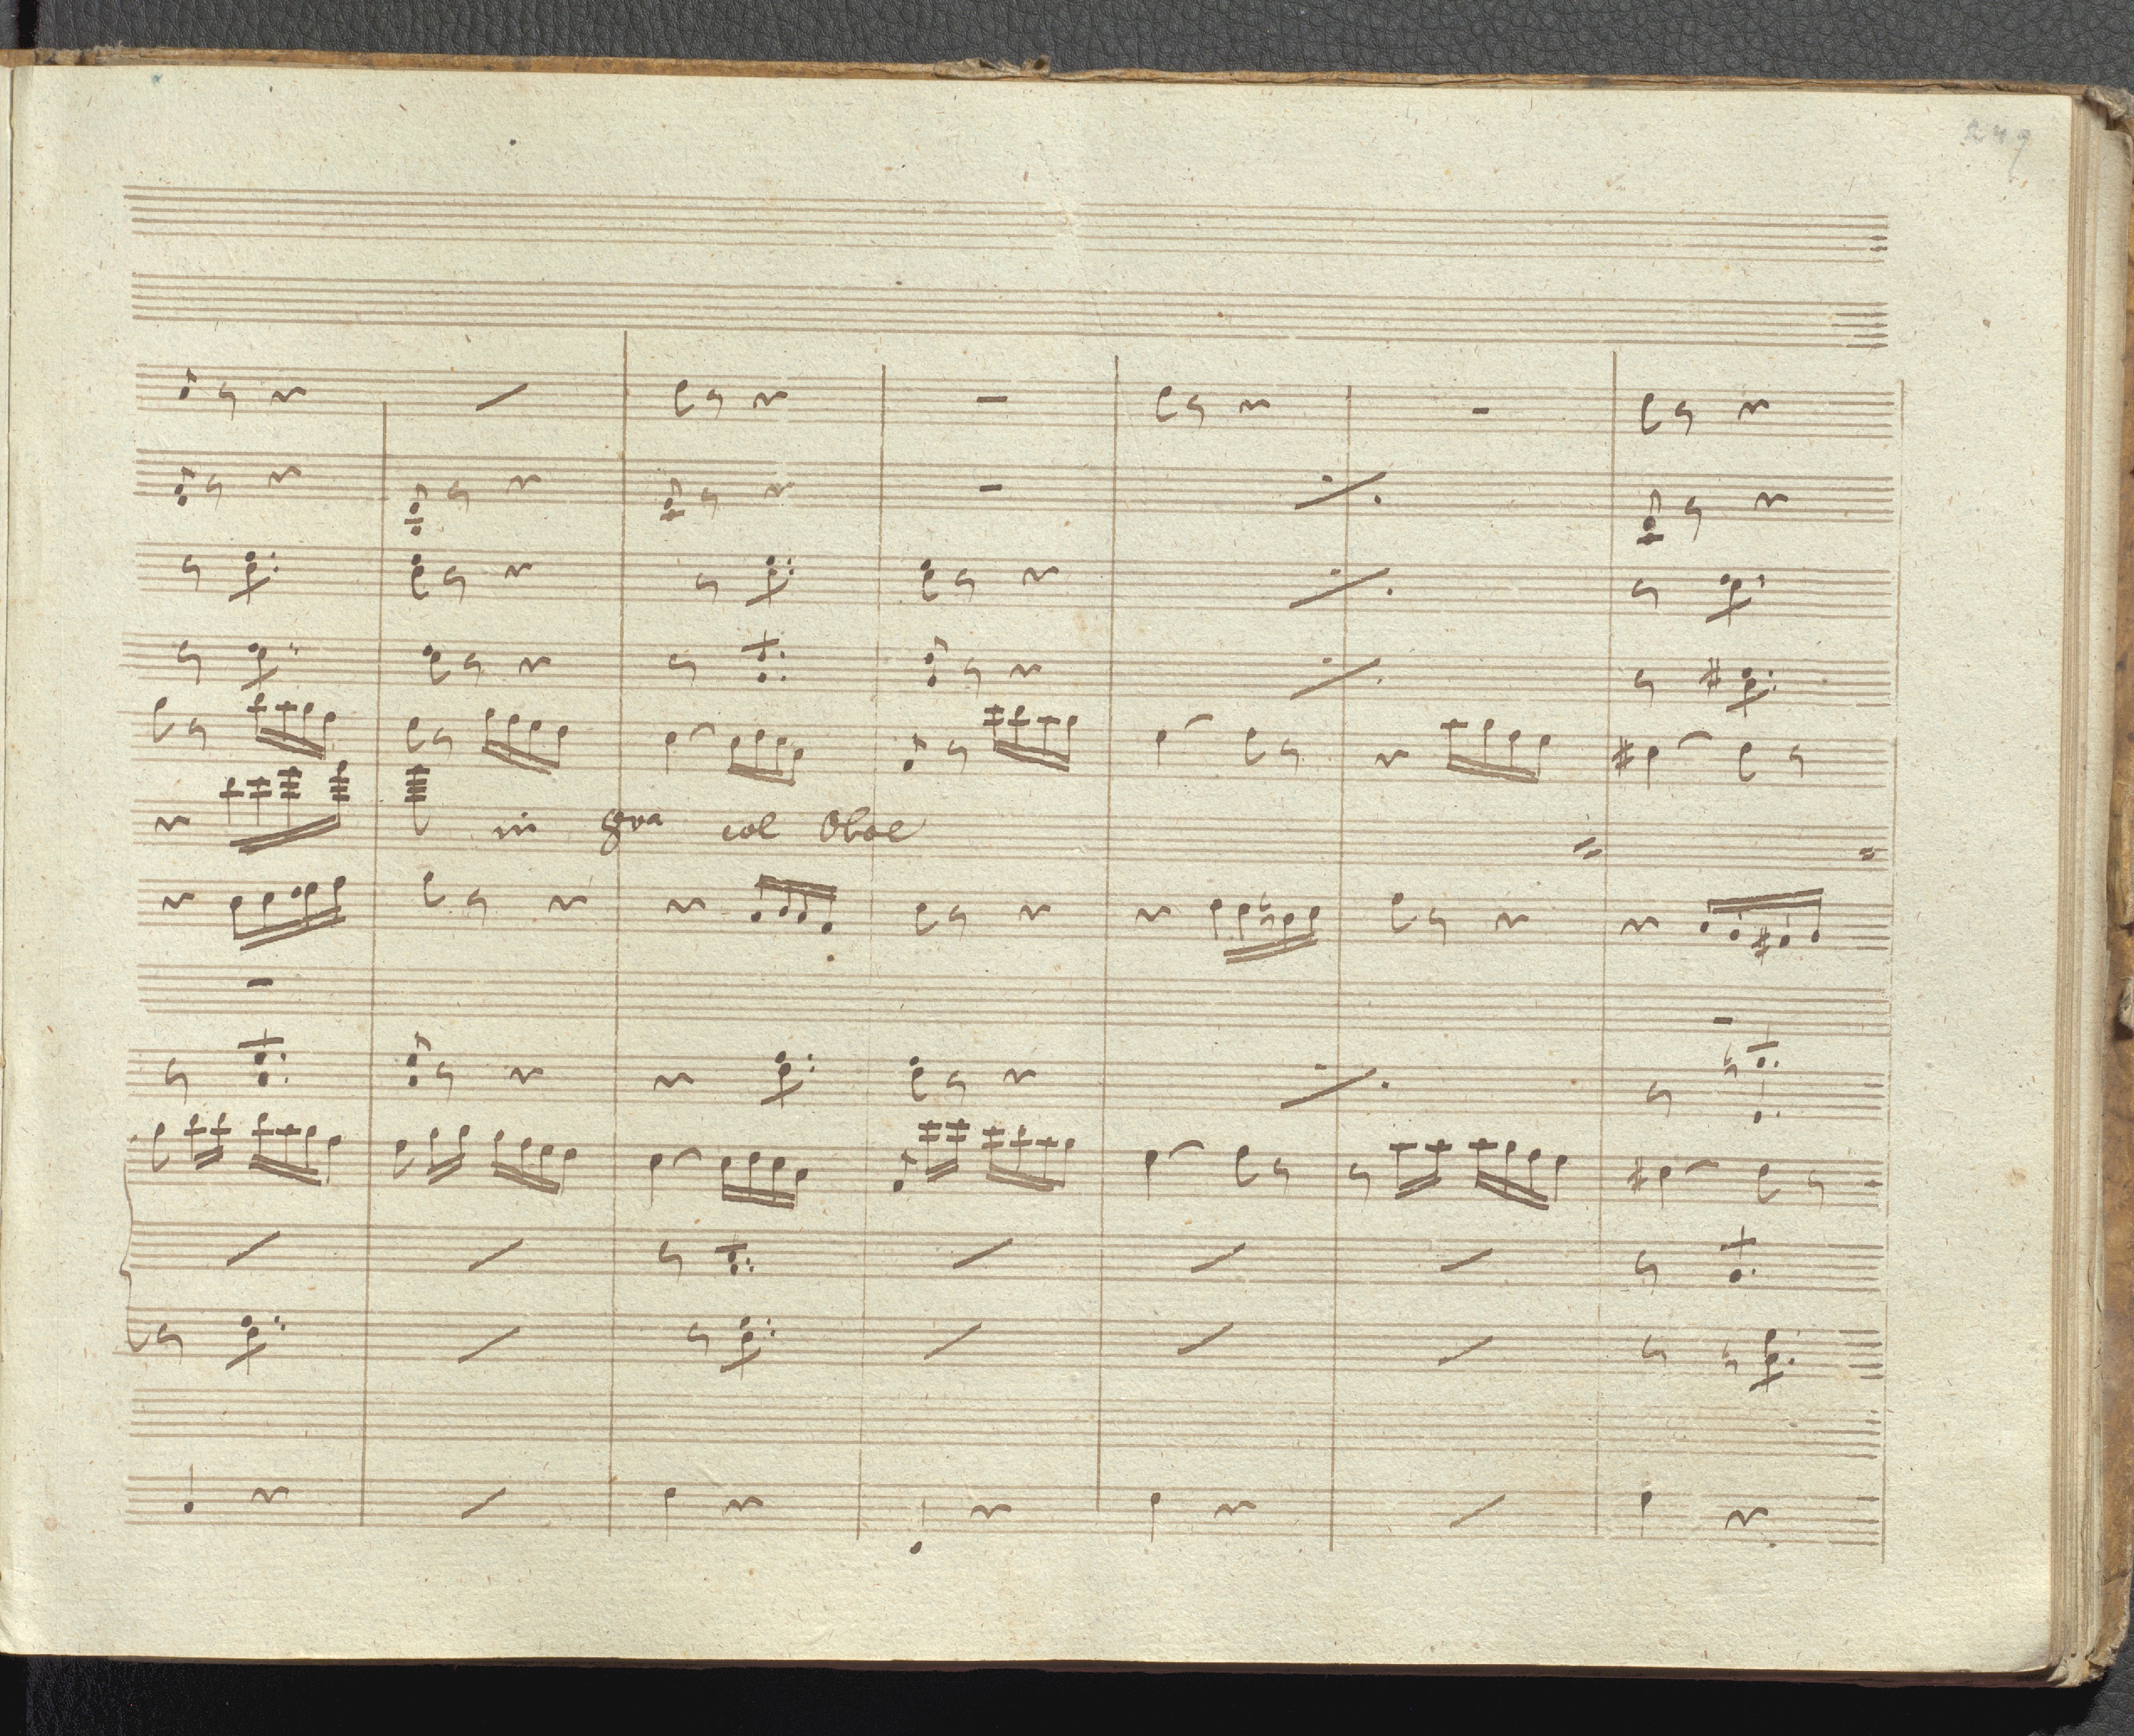 249
in 8va col Oboe